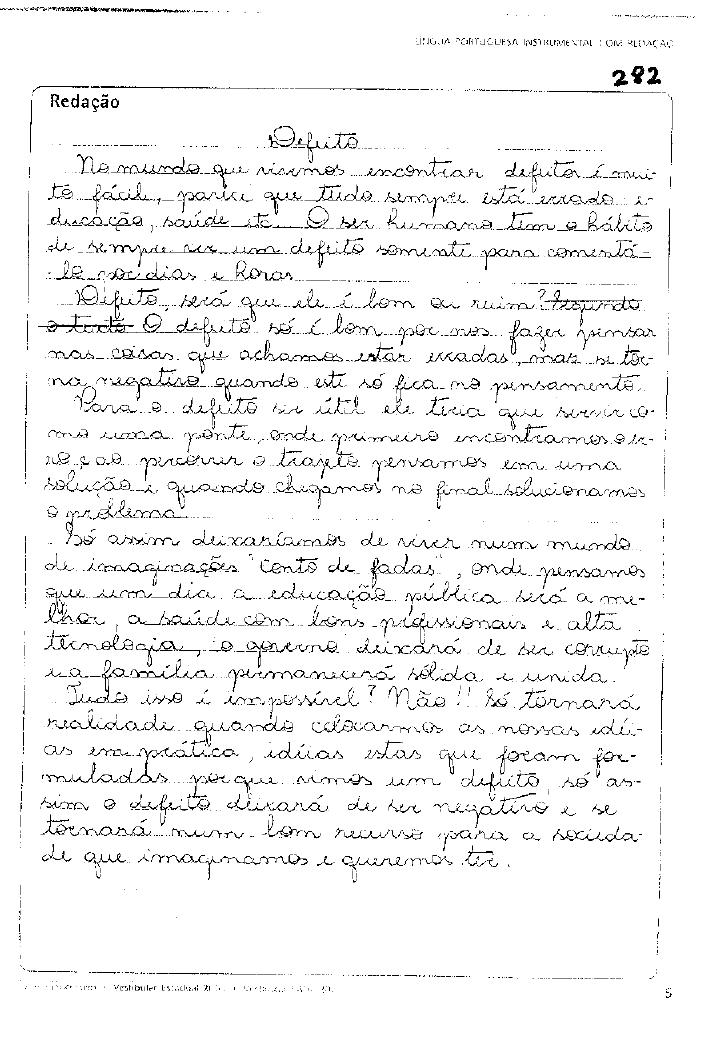 LÍNGUA PORTUGUESA INSTRUMENTAL COM REDAÇÃO
292
Redação
Defeito
No mundo que vivemos encontrar defeitos é mui-
to fácil, parece que tudo sempre está errado e-
ducação, saúde etc. O ser humano tem o hábito
de sempre ver um defeito somente para comentá-
lo nos dias e horas
Defeito, será que ele é bom ou ruim? Segundo
o texto O defeito só é bom por nos fazer pensar
nas coisas que achamos estar erradas, mas se tor-
na negativo quando este só fica no pensamento.
Para o defeito ser útil ele teria que servir co-
mo uma ponte, onde primeiro encontramos o er-
ro e ao percorrer o trajeto pensamos em uma
solução e quando chegamos no final solucionamos
o problema.
Só assim deixaríamos de viver num mundo
de imaginações "conto de fadas", onde pensamos
que um dia a educação pública será a me-
lhor, a saúde com bons profissionais e alta
tecnologia, o governo deixará de ser corrupto
e a família permanecerá sólida e unida.
Tudo isso é impossível? Não!! Só tornará
realidade quando colocarmos as nossas idéi-
as em prática, idéias estas que foram for-
muladas porque vimos um defeito, só as-
sim o defeito deixará de ser negativo e se
tornará num bom recurso para a socieda-
de que imaginamos e queremos ter.
Vestibular Estadual
5